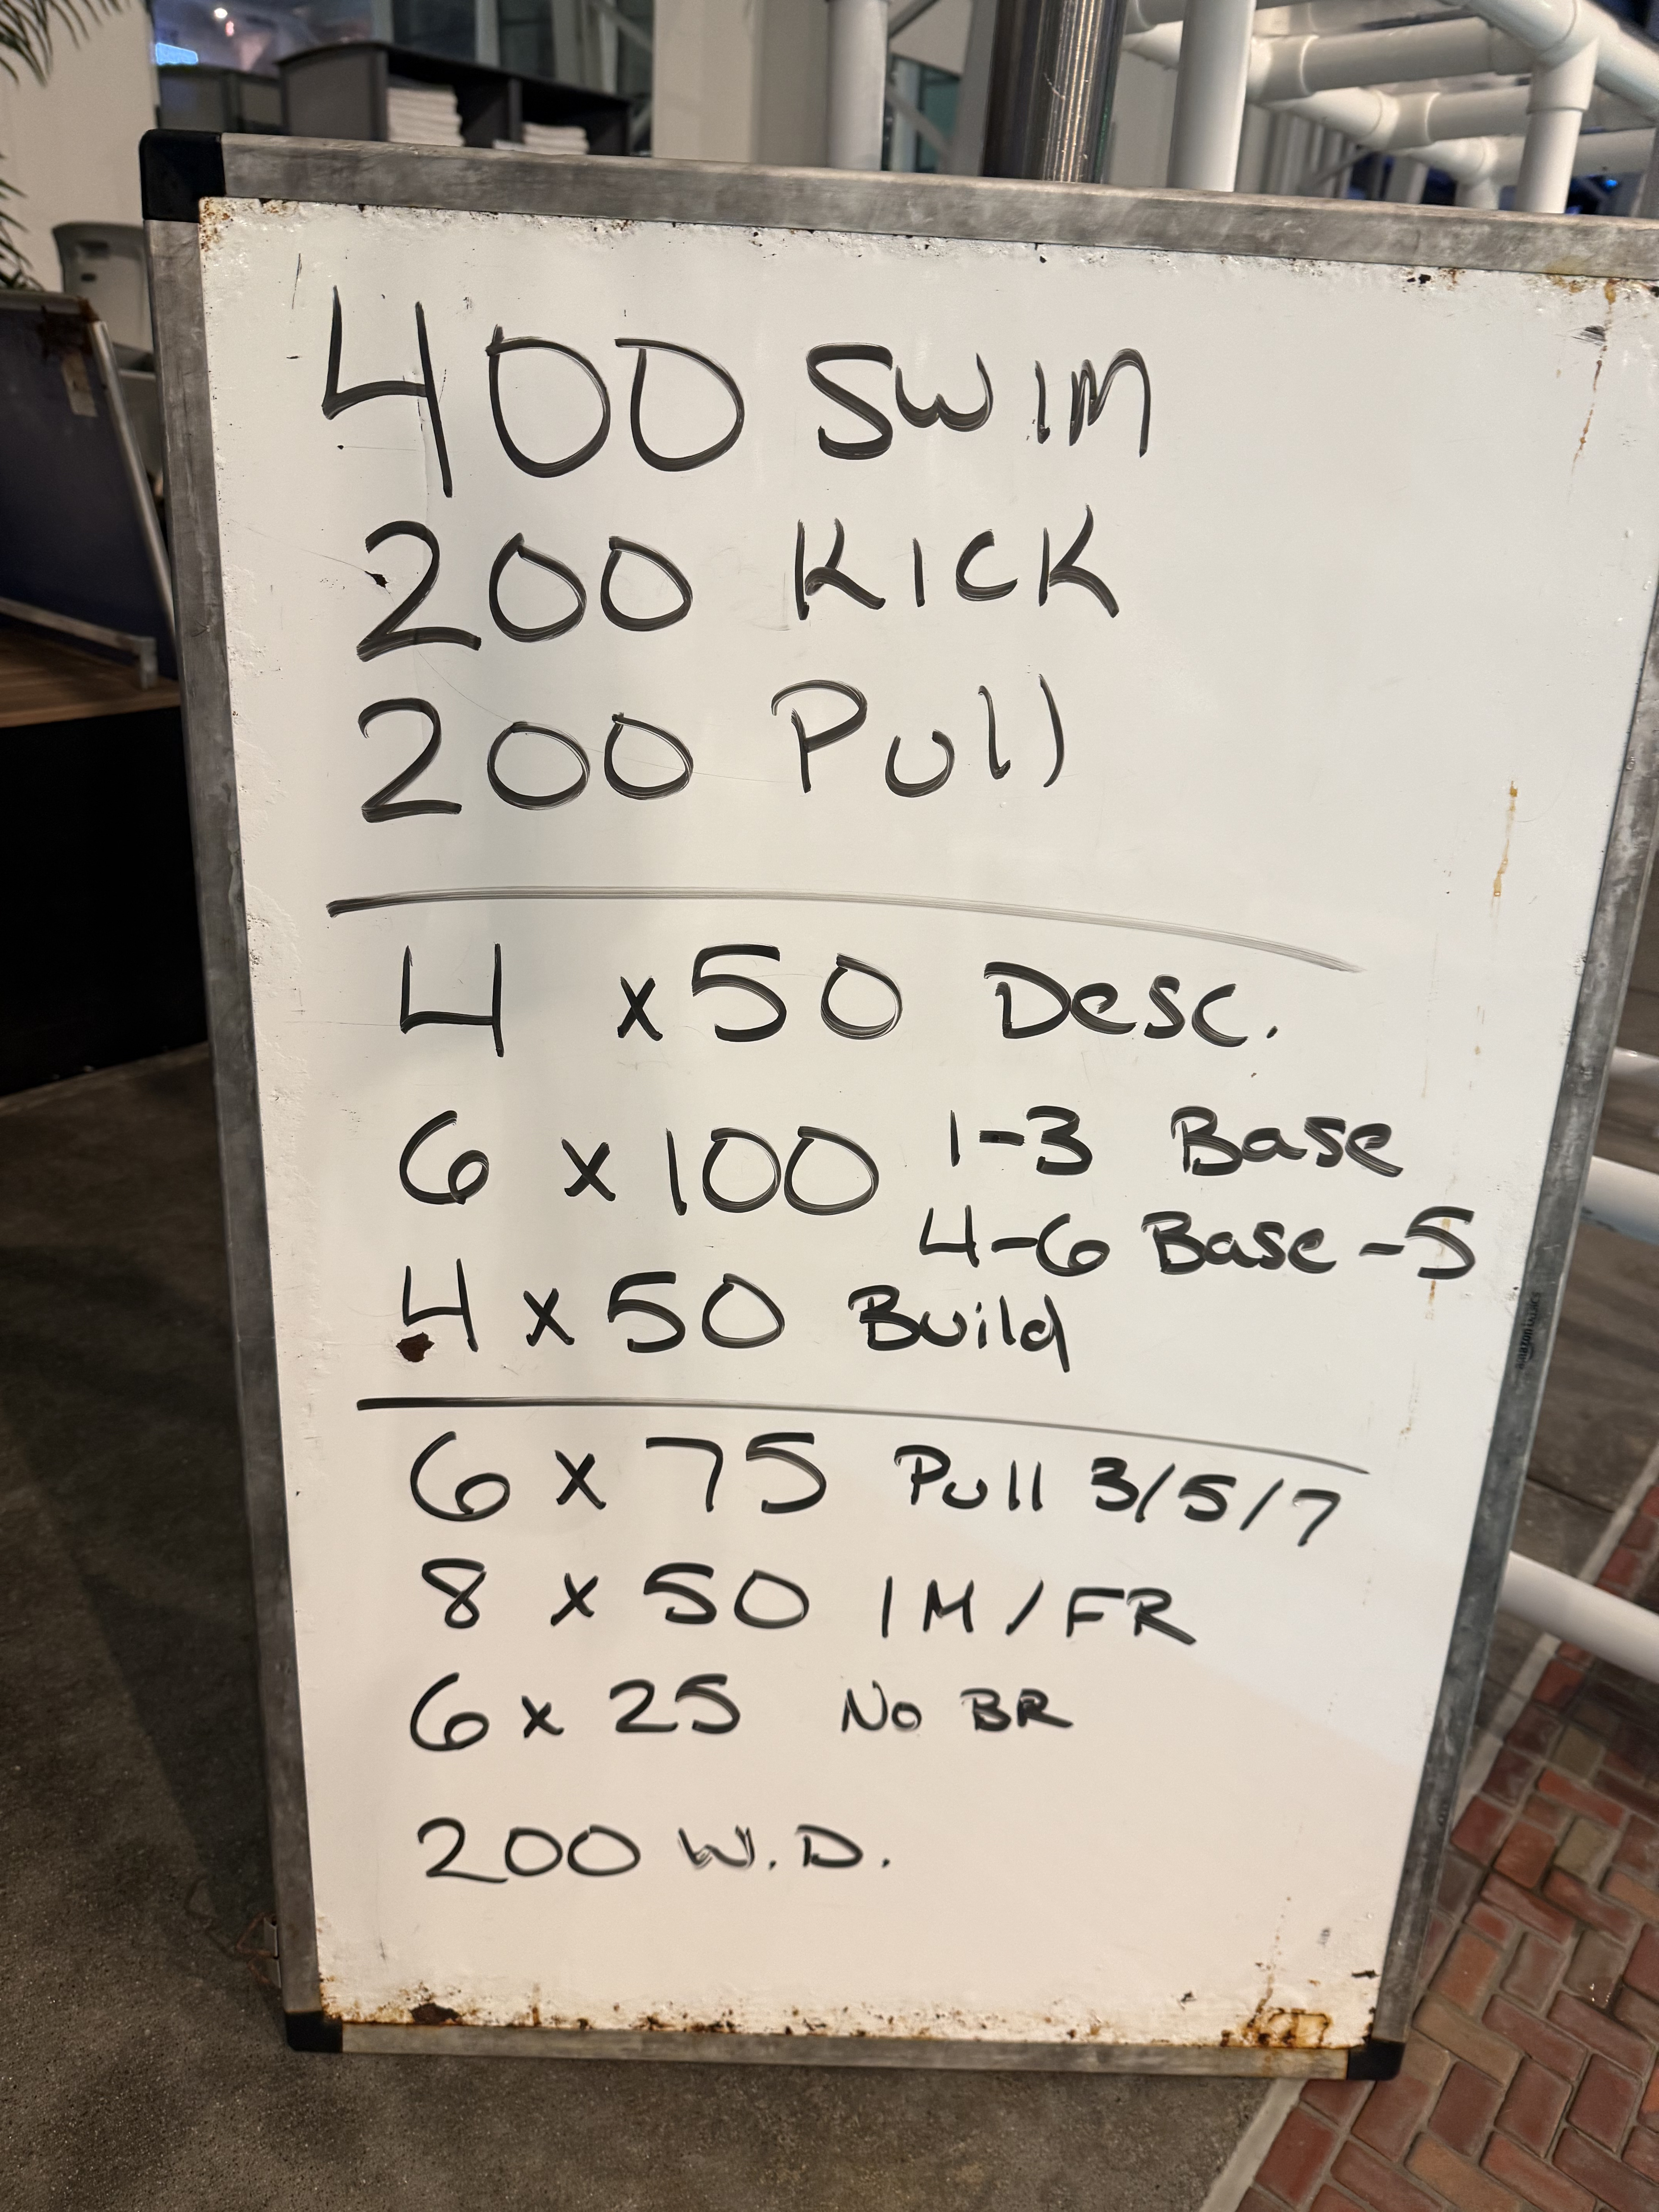 400 SWIM
200 KICK
200 Pull
4 x 50 Desc.
6 x 100 1-3 Base
4-6 Base -5
4 x 50 Build
6 x 75 Pull 3/5/7
8 x 50 IM/FR
6 x 25 No BR
200 W.D.
amazon basics